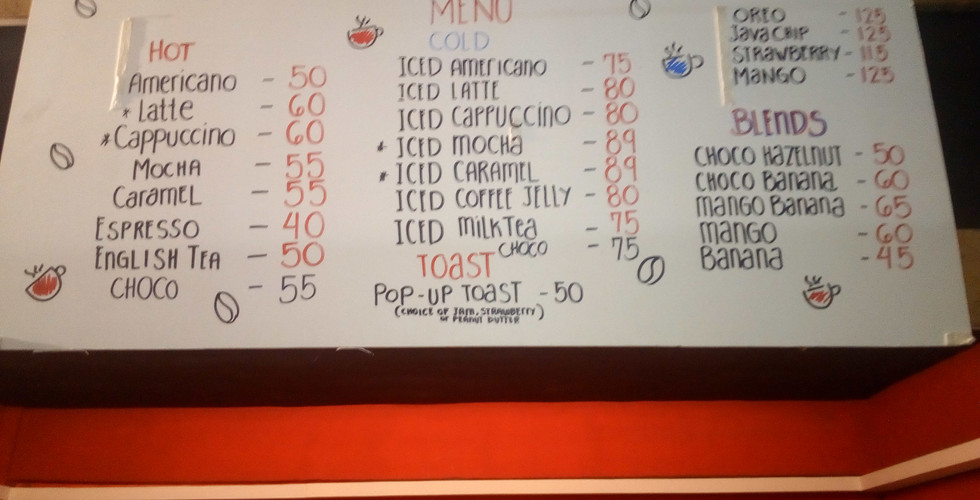 MENU
HOT
Americano - 50
* Latte - 60
* Cappuccino - 60
MOCHA - 55
Caramel - 55
ESPRESSO - 40
ENGLISH TEA - 50
CHOCO - 55
COLD
ICED AMERICANO - 75
ICED LATTE - 80
ICED CAPPUCCINO - 80
* ICED MOCHA - 89
* ICED CARAMEL - 89
ICED COFFEE JELLY - 80
ICED MILKTEA - 75
CHOCO - 75
TOAST
POP-UP TOAST - 50
(CHOICE OF JAM, STRAWBERRY
OR PEANUT BUTTER)
OREO - 125
JAVA CHIP - 125
STRAWBERRY - 115
MANGO - 125
BLENDS
CHOCO HAZELNUT - 50
CHOCO BANANA - 60
MANGO BANANA - 65
MANGO - 60
BANANA - 45